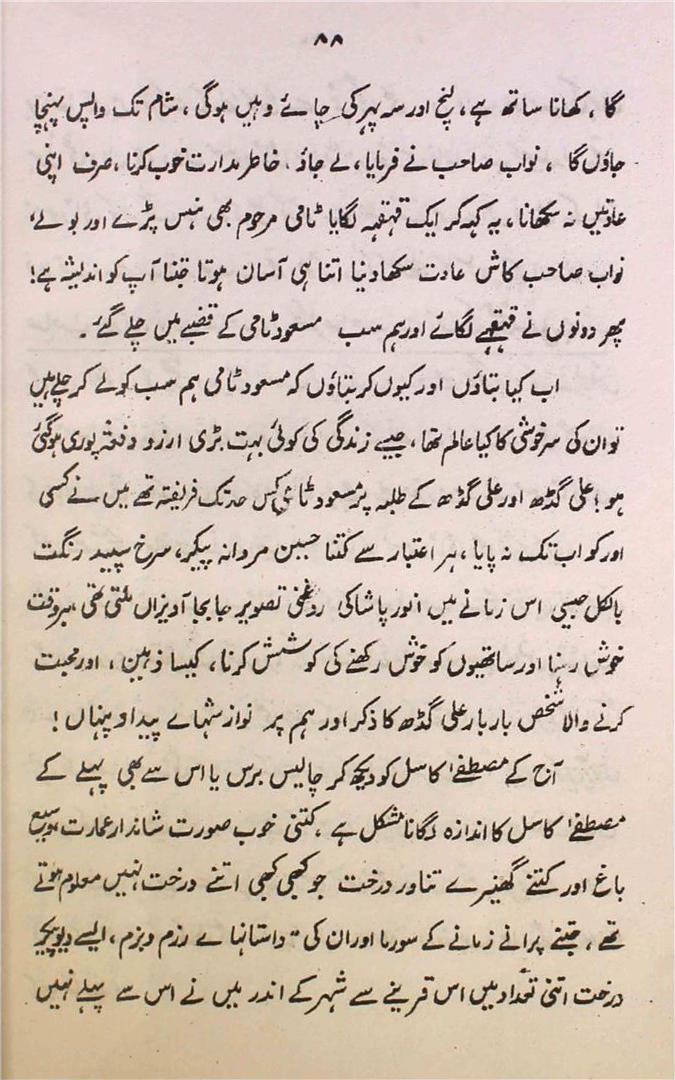 ۸۸
گا، کھانا ساتھ ہے، لنچ اور سہ پہر کی چائے وہیں ہوگی، شام تک واپس پہنچا
جاؤں گا، نواب صاحب نے فرمایا، لے جاؤ، خاطر مدارت خوب کرنا، صرف اپنی
عادتیں نہ سکھانا، یہ کہہ کر ایک قہقہہ لگایا ٹامی مرحوم بھی ہنس پڑے اور بولے،
نواب صاحب کاش عادت سکھا دینا اتنا ہی آسان ہوتا جتنا آپ کو اندیشہ ہے!
پھر دونوں نے قہقہے لگائے اور ہم سب مسعود ٹامی کے قبضے میں چلے گئے۔
اب کیا بتاؤں اور کیوں کر بتاؤں کہ مسعود ٹامی ہم سب کو لے کر چلے ہیں
تو ان کی سرخوشی کا کیا عالم تھا، جیسے زندگی کی کوئی بہت بڑی ارزو دفعتہ پوری ہو گئی
ہو! علی گڈھ اور علی گڈھ کے طلبہ پر مسعود ٹامی کس حد تک فریفتہ تھے میں نے کسی
اور کو اب تک نہ پایا، ہر اعتبار سے کتنا حسین مردانہ پیکر، سرخ سپید رنگت
بالکل جیسی اس زمانے میں انور پاشا کی روغنی تصویر جا بجا آویزاں ملتی تھی، ہر وقت
خوش رہنا اور ساتھیوں کو خوش رکھنے کی کوشش کرنا، کیسا ذہین، اور محبت
کرنے والا شخص بار بار علی گڈھ کا ذکر اور ہم پر نوازشہاے پیدا و پنہاں!
آج کے مصطفےٰ کاسل کو دیکھ کر چالیس برس یا اس سے بھی پہلے کے
مصطفےٰ کاسل کا اندازہ لگانا مشکل ہے، کتنی خوب صورت شاندار عمارت، وسیع
باغ اور کتنے گھنیرے تناور درخت جو کبھی کبھی اتنے درخت نہیں معلوم ہوتے
تھے، جتنے پرانے زمانے کے سورما اور ان کی "داستانہاے رزم و بزم، ایسے دیو پیکر
درخت اتنی تعداد میں اس قرینے سے شہر کے اندر میں نے اس سے پہلے نہیں